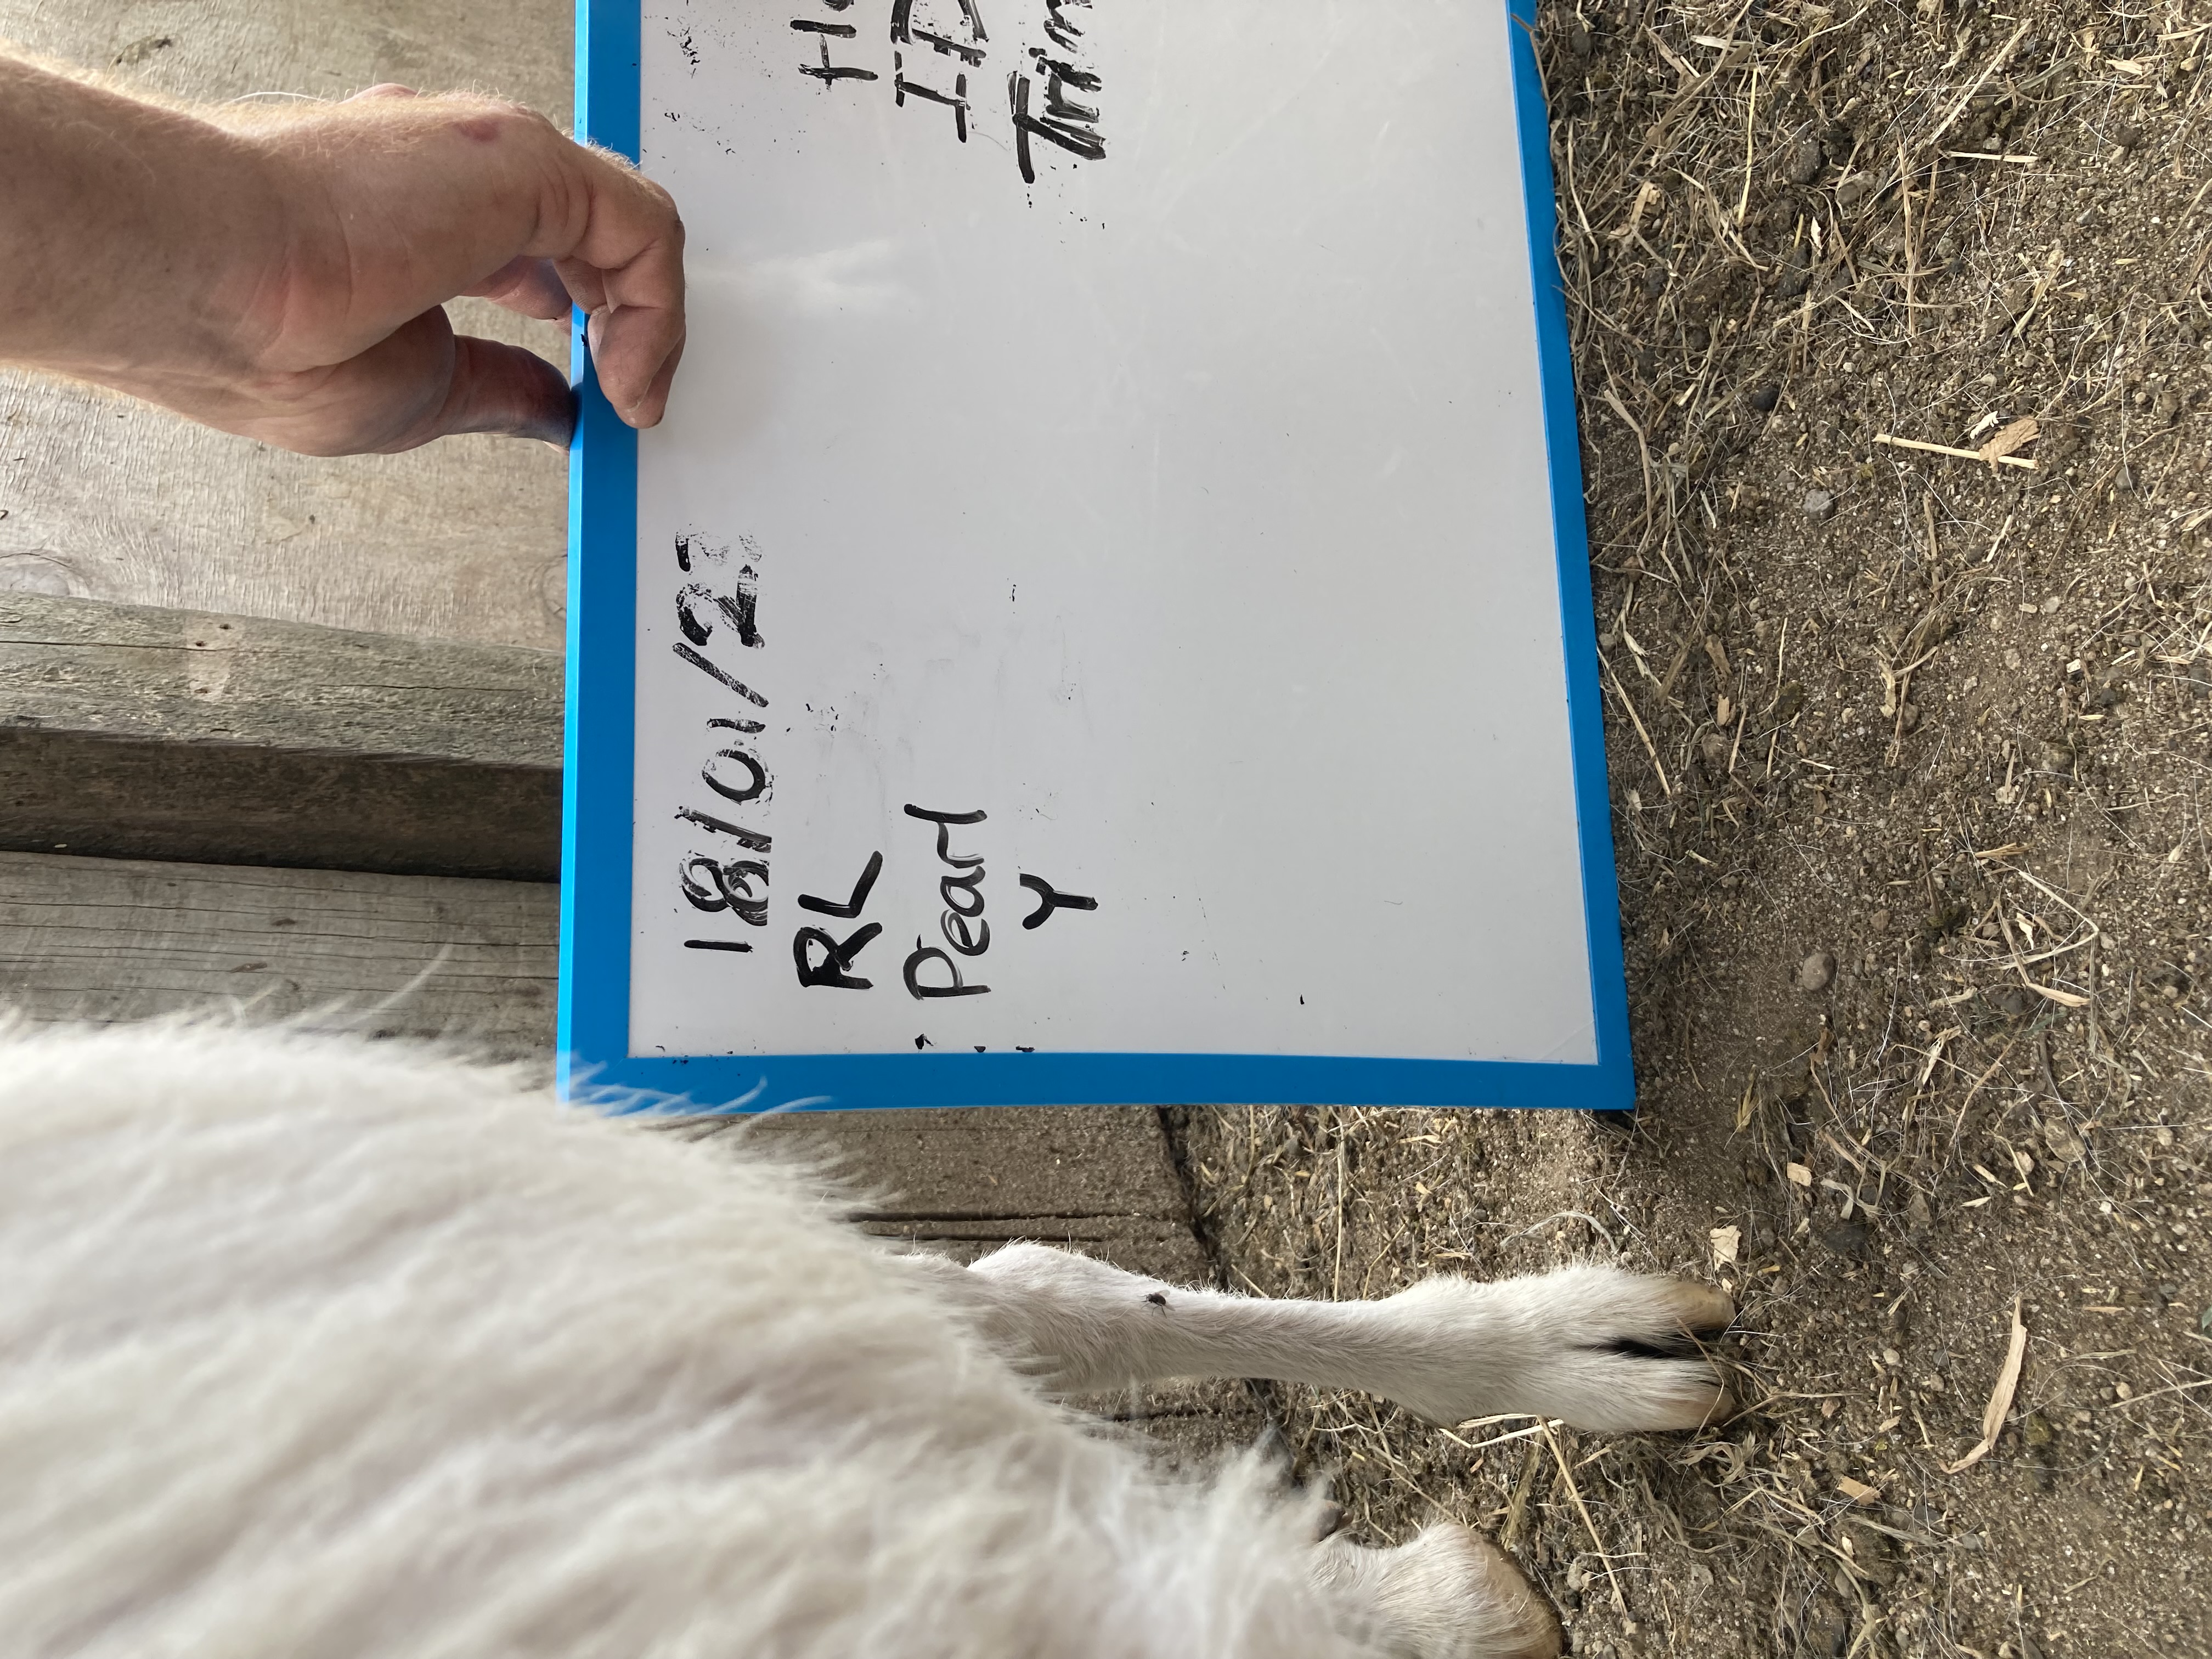 18/01/23
RL
Pearl
Y
ID
Trim